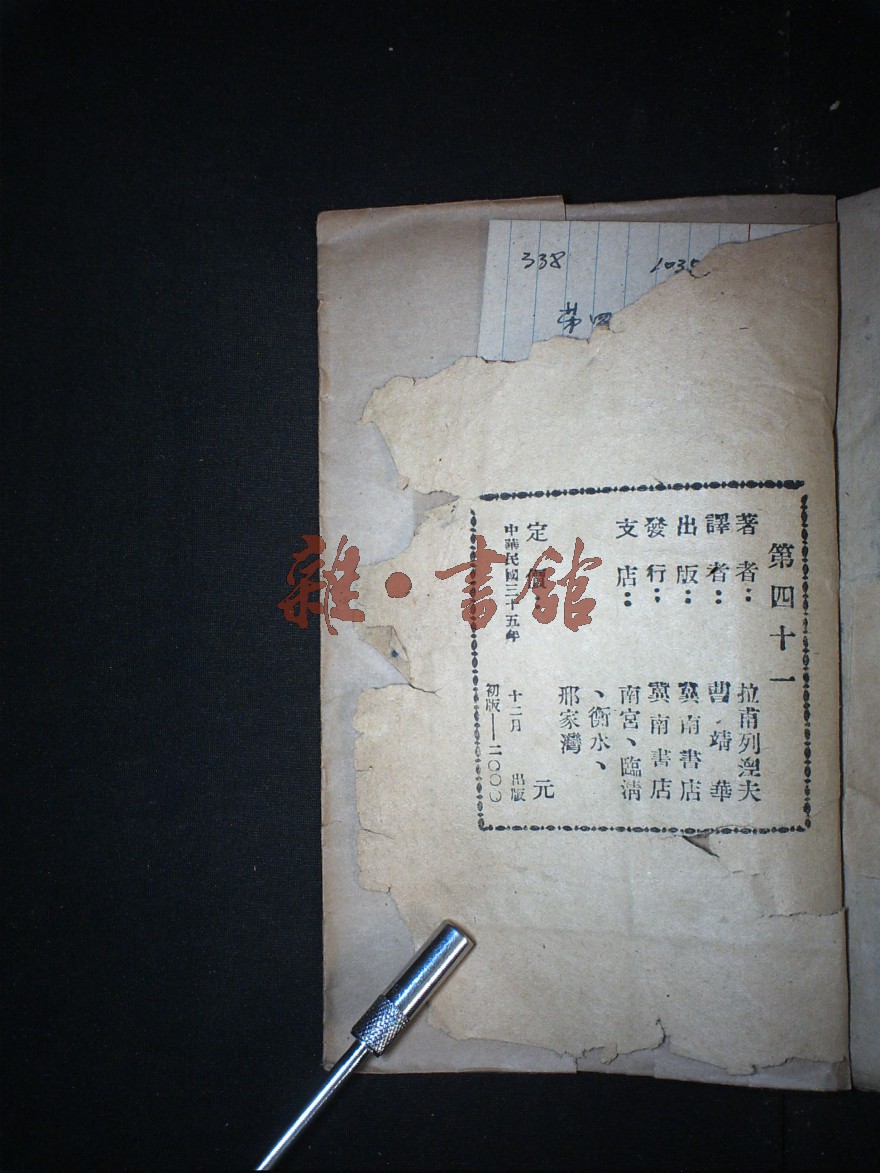 338 1035
第四
第四十一
著者：拉甫列湼夫
譯者：曹靖華
出版：冀南書店
發行：冀南書店
支店：南宮、臨清
、衡水、
邢家灣
定價：元
中華民國三十五年十二月出版
初版—二〇〇〇
雜·書館